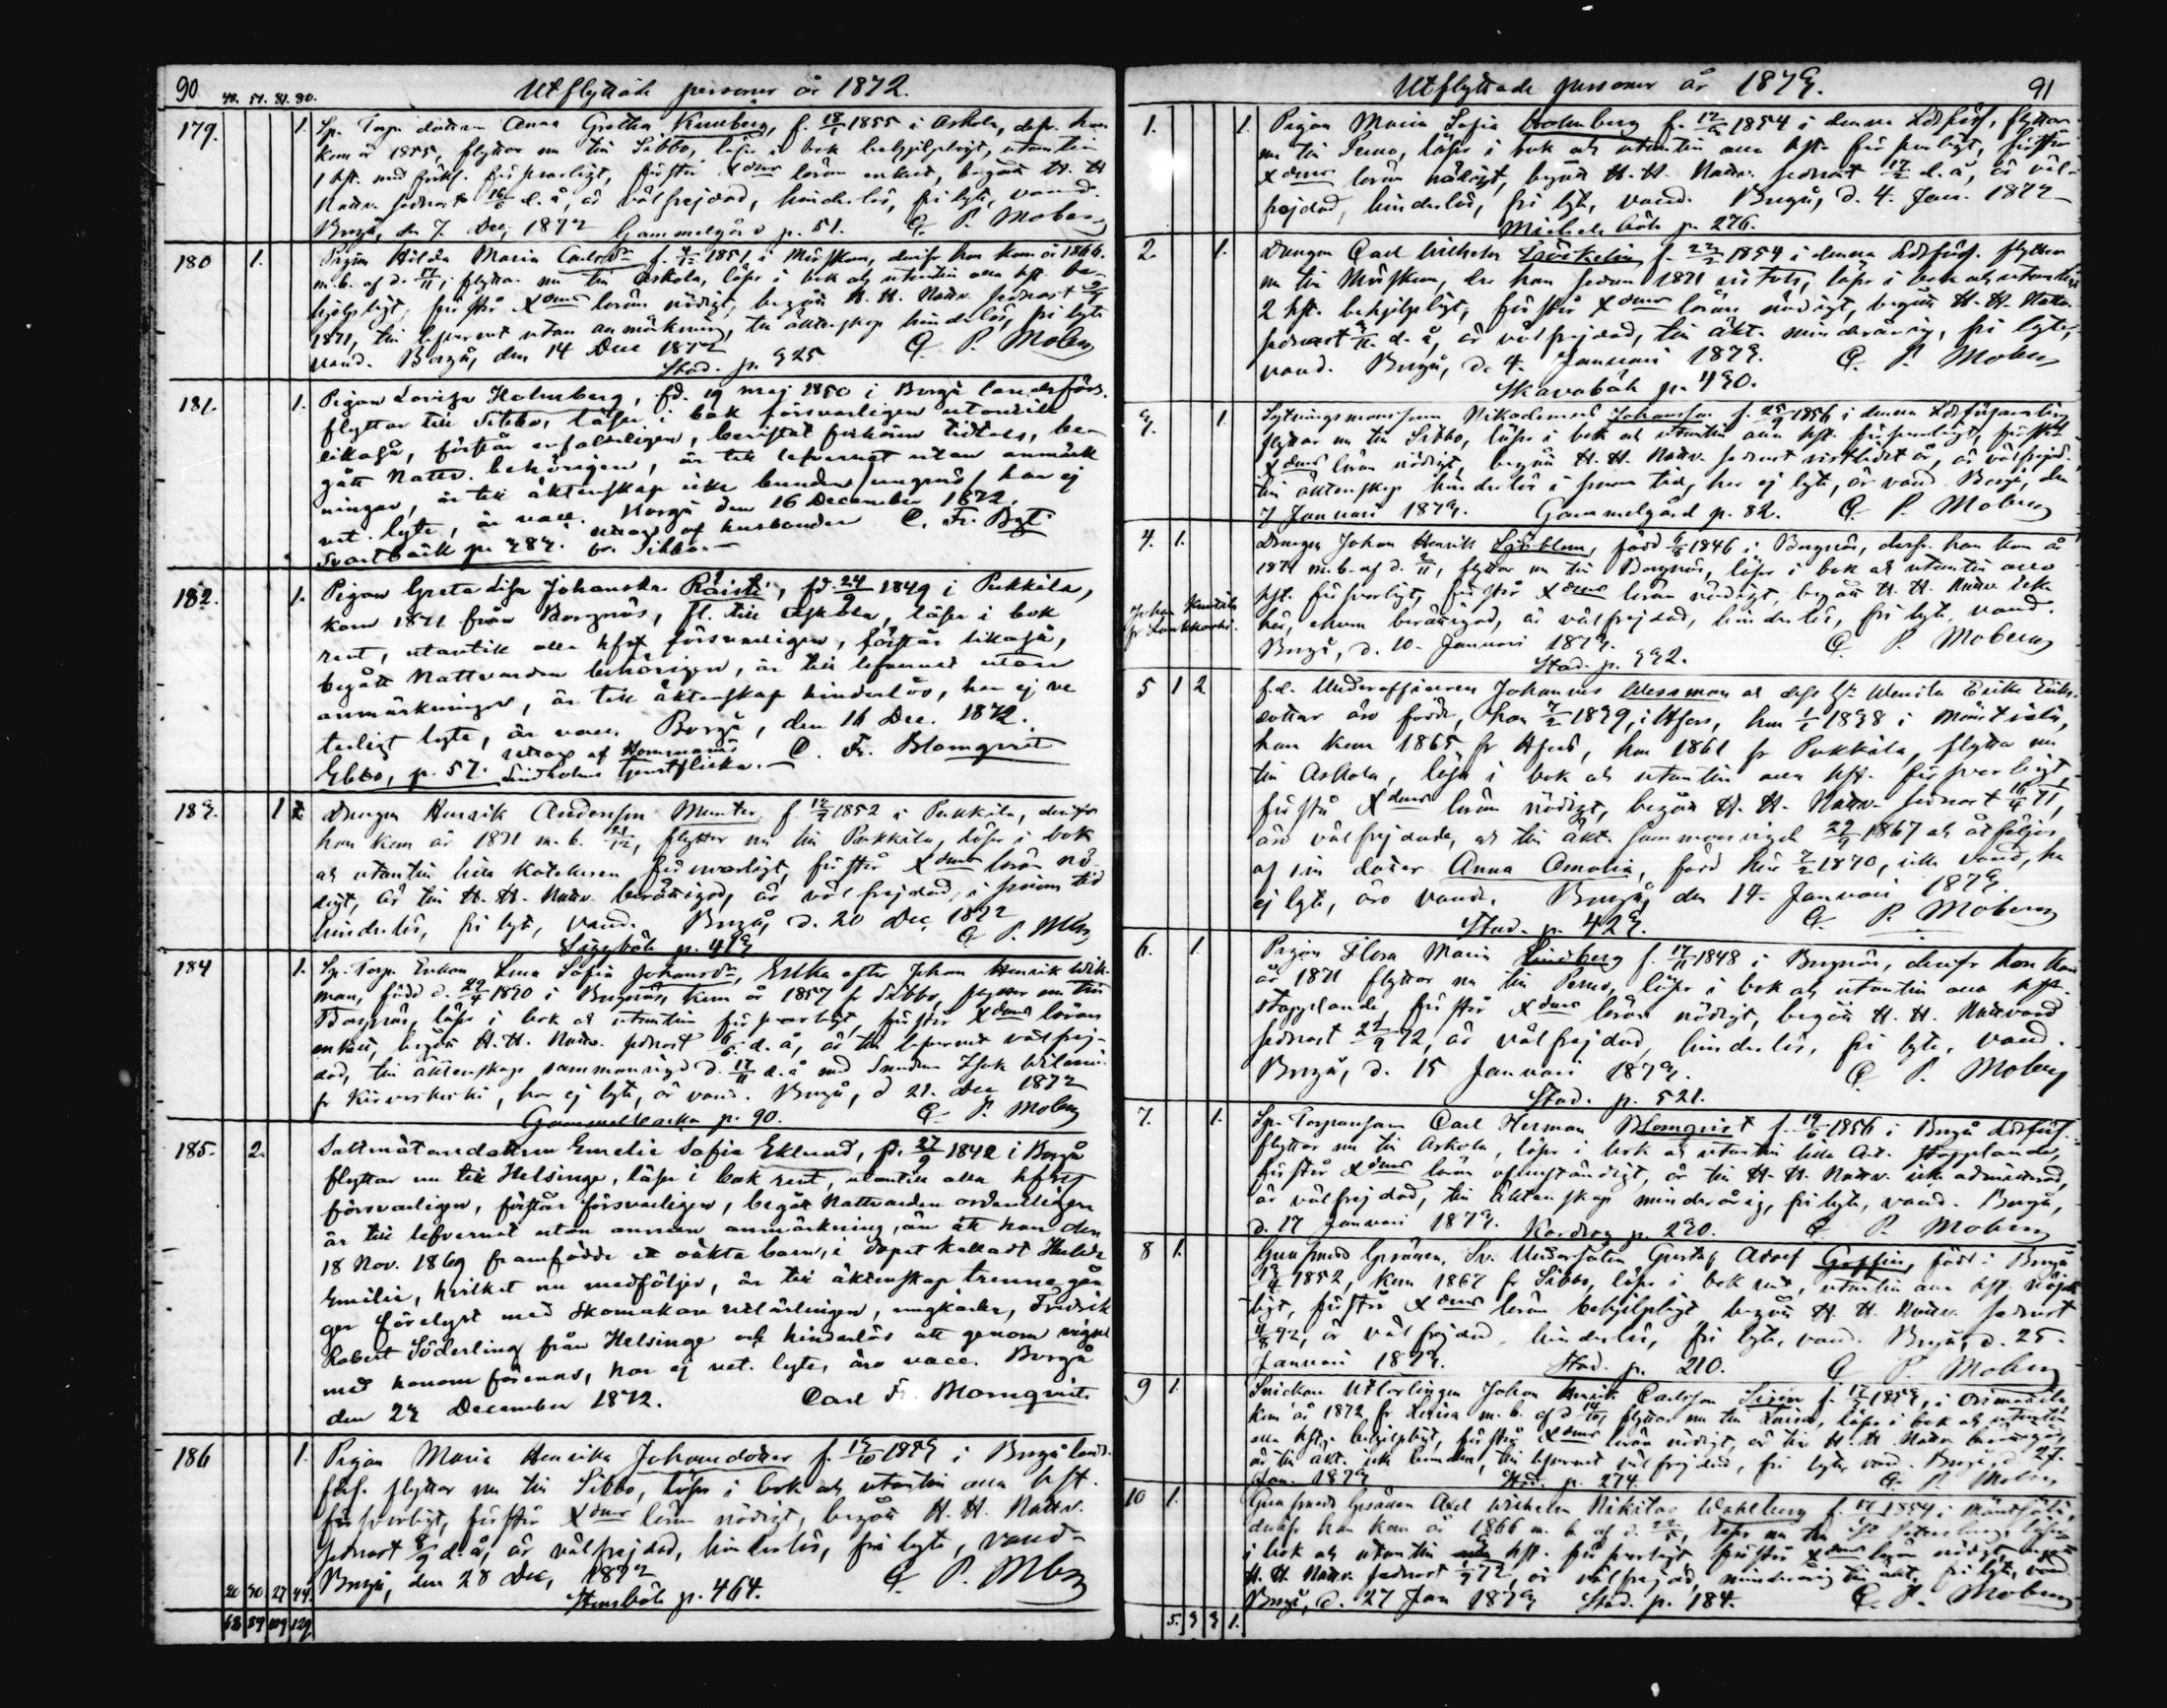 90 48. 51. 81. 80. Utflyttade personer år 1872.
179. 1. Sp. Torp. dottren Anna Gretha f. 18/1 1855 i Askola, derfr. hon
kom år 1855, flyttar nu till Sibbo, läser i bok behjelpligt, utantill
1 hft. med förkl. försvarligt, förstår Xdms läran enkelt, begått H. H.
Nattv. sednast d. å, är välfrejdad, hinderlös, fri lyte, vaccd.
Borgå, den 7. Dec. 1872 Gammelgård p. 51. C. P. Moberg
180 1. Pigan Hilda Maria Carlsdr f. 1851 i Mörskom, derifr hon kom år 1866.
m. b. af d. flyttar nu till Askola, läser i bok och utantill alla hft. be-
hjelpligt, förstår Xdms läran nödigt, begått H. H. Nattv. sednast
1871, till lefvernet utan anmärkning, till äktenskap hinderlös, fri lyte
vaccd. Borgå, den 14 Dec 1872 C. P. Moberg
Stad. p. 325
181. 1. Pigan Lovisa Holmberg, fd. 19 maj 1850 i Borgå landsförs.
flyttar till Sibbo, läser i bok försvarligen utantill
likaså, förstår enfaldeligen, bevistat förhören tidtals, be-
gått Nattv. behörigen, är till lefvernet utan anmärk
ningar, är till äktenskap icke bunden/ungmö/ har ej
vet. lyte, är vacc. Borgå den 16 December 1872.
Svartbäck p. 387. af husbonden C. Fr. Bqt
fr. Sibbo.
182. 1. Pigan Greta Lisa Johanska Räisti, fd 24/9 1849 i Pukkila,
kom 1871 från Borgnäs, fl. till Askola, läser i bok
rent, utantill alla hfst försvarligen, förstår likaså,
begått Nattvarden behörigen, är till lefvernet utan
anmärkningar, är till äktenskap hinderlös, har ej ve
terligt lyte, är vacc. Borgå, den 16 Dec. 1872.
Ebbo, p. 57. af C. Fr. Blomqvist
183. 1 Drengen Henrik Andersson Munter f. 1852 i Pukkila, derifr
han kom år 1871 m. b. flyttar nu till Pukkila, läser i bok
och utantill hela Katekesen försvarligt, förstår Xdms läran nö
digt, är till H. H. Nattv. berättigad, är välfrejdad, i sednare tid
hinderlös, fri lyte, vaccd. Borgå, d. 20 Dec. 1872
C. P. Mbg
184 1. Sp. Torp. Enkan Lena Sofia Johansdr, Enka efter Johan Henrik Wik-
man, född d. 22/4 1830 i Borgnäs, kom år 1857 fr Sibbo, flyttar nu till
Borgnäs, läser i bok och utantill försvarligt, förstår Xdms läran
enkelt, begått H. H. Nattv. sednast d. å, är till lefvernet välfrej-
dad, till äktenskap sammanvigd d. 17/11 d. å med
har ej lyte, är vaccd. Borgå, d 21. Dec 1872
Gammelbacka p. 90. C. P. Moberg
185. 2. Emelie Sofia Eklund, fd. 27/9 1842 i Borgå
flyttar nu till Helsinge, läser i bok rent, utantill alla hfst
försvarligen, förstår försvarligen, begått Nattvarden ordentligen
är till lefvernet utan annan anmärkning, än att hon den
18 Nov. 1869 framfödde ett oäkta barn, i dopet kalladt Hulda
Emilie, hvilket nu medföljer, är till äktenskap trenne gån
ger förelyst med Skomakare utlärlingen, ungkarlen, Fredrik
Robert Söderling från Helsinge och hinderlös att genom vigsel
med honom förenas, har ej vet. lyte, äro vacc. Borgå
den 23 December 1872. Carl Fr. Blomqvist
186 1. Pigan Maria Henrika Johansdotter f. 13/10 1843 i Borgå lands.
förs. flyttar nu till Sibbo, läser i bok och utantill alla hft.
försvarligt, förstår Xdms läran nödigt, begått H. H. Nattv.
sednast 8/9 d. å, är välfrejdad, hinderlös, fri lyte, vaccd.
Borgå, den 28 Dec, 1872 C. P. Mbg
20 30 27 44. Stensböle p. 464.
68 89 109 129
Utflyttade personer år 1873. 91
1. 1. Pigan Maria Sofia Holmberg f. 1854 i denna Ldsförs, flyttar
nu till Perno, läser i bok och utantill alla hft. försvarligt, förstår
Xdms läran nödigt, begått H. H. Nattv. sednast d. å, är väl-
frejdad, hinderlös, fri lyte, vaccd. Borgå, d. 4. Jan. 1873
Mickels böle p. 276.
2. 1. Drengen Carl Wilhelm f. 1854 i denna Ldsförs. flyttar
nu till Mörskom, der han sedan 1871 läser i bok och utantill
2 hft. behjelpligt, förstår Xdms läran nödigt, begått H. H. Nattv.
sednast d. å, är välfrejdad, till äkt. minderårig, fri lyte,
vaccd. Borgå, d. 4. Januari 1873. C. P. Moberg
Skavaböle p. 430.
3. 1. Nikodemus Johansson f. 25/9 1856 i denna Ldsförsamling
flyttar nu till Sibbo, läser i bok och utantill alla hft. försvarligt, förstår
Xdms läran nödigt, begått H. H. Nattv. sednast sistledet år, är välfrejd.
till äktenskap hinderlös i senare tid, har ej lyte, är vaccd. Borgå, den
7 Januari 1873. Gammelgård p. 82. C. P. Moberg
4. 1. Drengen Johan Henrik Sjöblom, född 1846 i Borgnäs, derfr. han kom år
1871 m. b. af d. flyttar nu till Borgnäs, läser i bok och utantill alla
hft. försvarligt, förstår Xdms läran nödigt, begått H. H. Nattv. icke
här, ehuru berättigad, är välfrejdad, hinderlös, fri lyte, vaccd.
Borgå, d. 10. Januari 1873. C. P. Moberg
Stad. p. 332.
5 1 2 f.d. Underofficeren Johannes Wessman och dess h:u Wendla Erika Eriks-
dotter äro födde, han 1839, i Hfors, hon 1838 i Mäntsälä,
han kom 1865 fr Hfors, hon 1861 fr Pukkila, flytta nu
till Askola, läsa i bok och utantill alla hft. försvarligt
förstå Xdms läran nödigt, begått H. H. Nattv. sednast 71,
äro välfrejdade, och till äkt. sammanvigde 29/9 1867 och åtföljes
af sin dotter Anna Amalia, född här 1870, icke vaccd, ha
ej lyte, äro vaccde. Borgå, den 14. Januari 1873.
Stad. p. 423. C. P. Moberg
6. 1. Pigan Flora Maria Lindberg f. 17/11 1848 i Borgnäs, derifr hon kom
år 1871 flyttar nu till Perno, läser i bok och utantill alla hft.
stapplande, förstår Xdms läran nödigt, begått H. H. Nattvard
sednast 22/9 72, är välfrejdad, hinderlös, fri lyte, vaccd.
Borgå, d. 15 Januari 1873. C. P. Moberg
Stad. p. 521.
7. 1. Sp. Torparsonen Carl Herman Blomqvist f. 19/6 1856 i Borgå Ldsförs.
flyttar nu till Askola, läser i bok och utantill hela Cat. stapplande,
förstår Xdms läran ofullständigt, är till H. H. Nattv. icke admitterad,
är välfrejdad, till äktenskap minderårig, fri lyte, vaccd. Borgå,
d. 17 Januari 1873. Kardrag p. 230. C. P. Moberg
8 1. Gesällen, Gustaf Adolf född i Borgå
1852, kom 1867 fr Sibbo, läser i bok rent, utantill alla hft. nöjak
ligt, förstår Xdms läran behjelpligt begått H. H. Nattv. sednast
72, är välfrejdad, hinderlös, fri lyte, vaccd. Borgå, d. 25.
Januari 1873. Stad. p. 210. C. P. Moberg
9 1. Snickare Utlärlingen Johan Henrik Carlsson f. 17 i Orimattila
kom år 1872 fr Lovisa m. b. af d flyttar nu till Lovisa, läser i bok och utantill
alla hft. behjelpligt, förstår Xdms läran nödigt, är till H. H. Nattv. berättigad,
är till äkt. icke bunden, till lefvernet välfrejdad, fri lyte, vaccd. Borgå, d 27.
Jan. 1873 Stad. p. 274. C. P. Moberg
10 1. Gesällen Axel Wilhelm Nikitas Wahlberg f. 1854 i Mäntsälä,
derifr han kom år 1866 m. b. af d. nu till
i bok och utantill hft. försvarligt förstår Xdms läran nödigt begått
H. H. Nattv. sednast 72, är välfrejdad, minderårig till äkt., fri lyte, vaccd.
Borgå, d. 27 Jan 1873 Stad. p. 184. C. P. Moberg
5. 3 3 1.